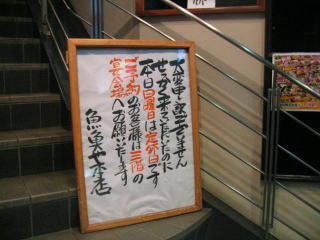 大変申し訳ございません
せっかく来ていただいたのに
本日日曜日は定休日です
ご予約のお客様は三階の
宴会場へお願いいたします
魚東や本店